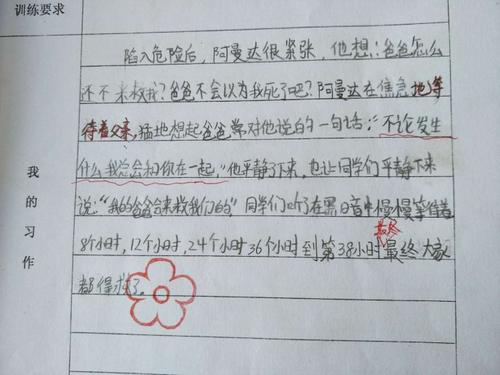 训练要求
陷入危险后，阿曼达很紧张，他想：爸爸怎么
还不来救我？爸爸不会以为我死了吧？阿曼达在焦急地等
待着父亲，猛地想起爸爸常对他说的一句话：“不论发生
什么我总会和你在一起，”他平静了下来，也让同学们平静下来
说：“我的爸爸会来救我们的”同学们听了在黑暗中慢慢等待着
最终
8个小时，12个小时，24个小时36个小时到第38小时最终大家
都得救了。
我的习作